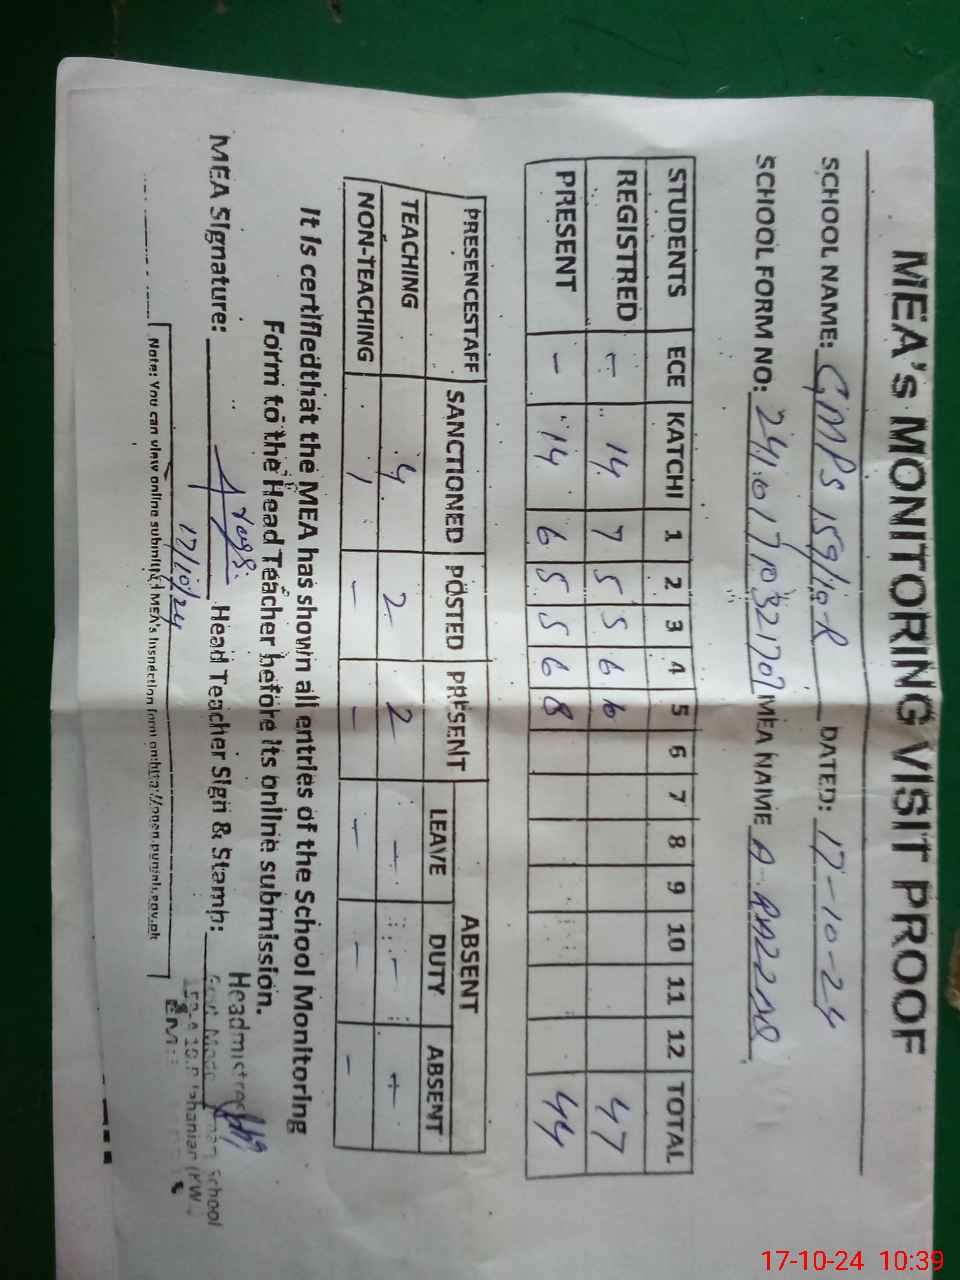 MEA's MONITORING VISIT PROOF
SCHOOL NAME: GMPS 159/10-R DATED: 17-10-24
SCHOOL FORM NO: MEA NAME A-RAZZAQ
STUDENTS ECE KATCHI 1 2 3 4 5 6 7 8 9 10 11 12 TOTAL
REGISTRED - 14 7 5 5 6 47
PRESENT - 14 6 5 5 6 8 44
PRESENCESTAFF SANCTIONED POSTED PRESENT ABSENT
LEAVE DUTY ABSENT
TEACHING 4 2 2 - - -
NON-TEACHING 1 - - - - -
It is certifiedthat the MEA has shown all entries of the School Monitoring
Form to the Head Teacher before its online submission.
MEA Signature: Head Teacher Sign & Stamp:
17/10/24
Headmistress
School
Note: You can view online submitted MEA's Inspection form on http://open.punjab.gov.pk
17-10-24 10:39